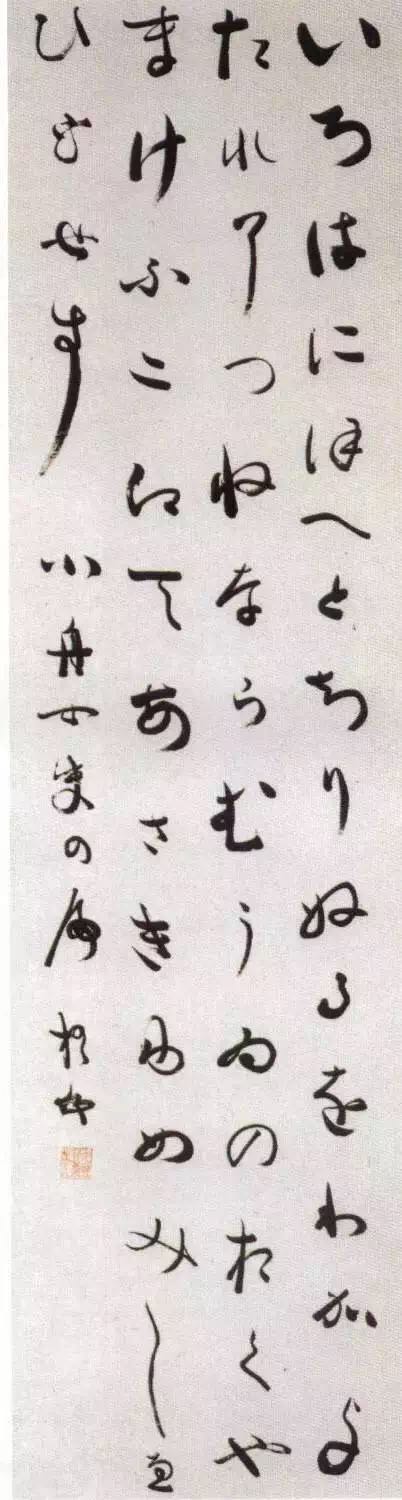 いろはにほへとちりぬるをわかよ
たれそつねならむうゐのおくや
まけふこえてあさきゆめみしゑ
ひもせす 小舟